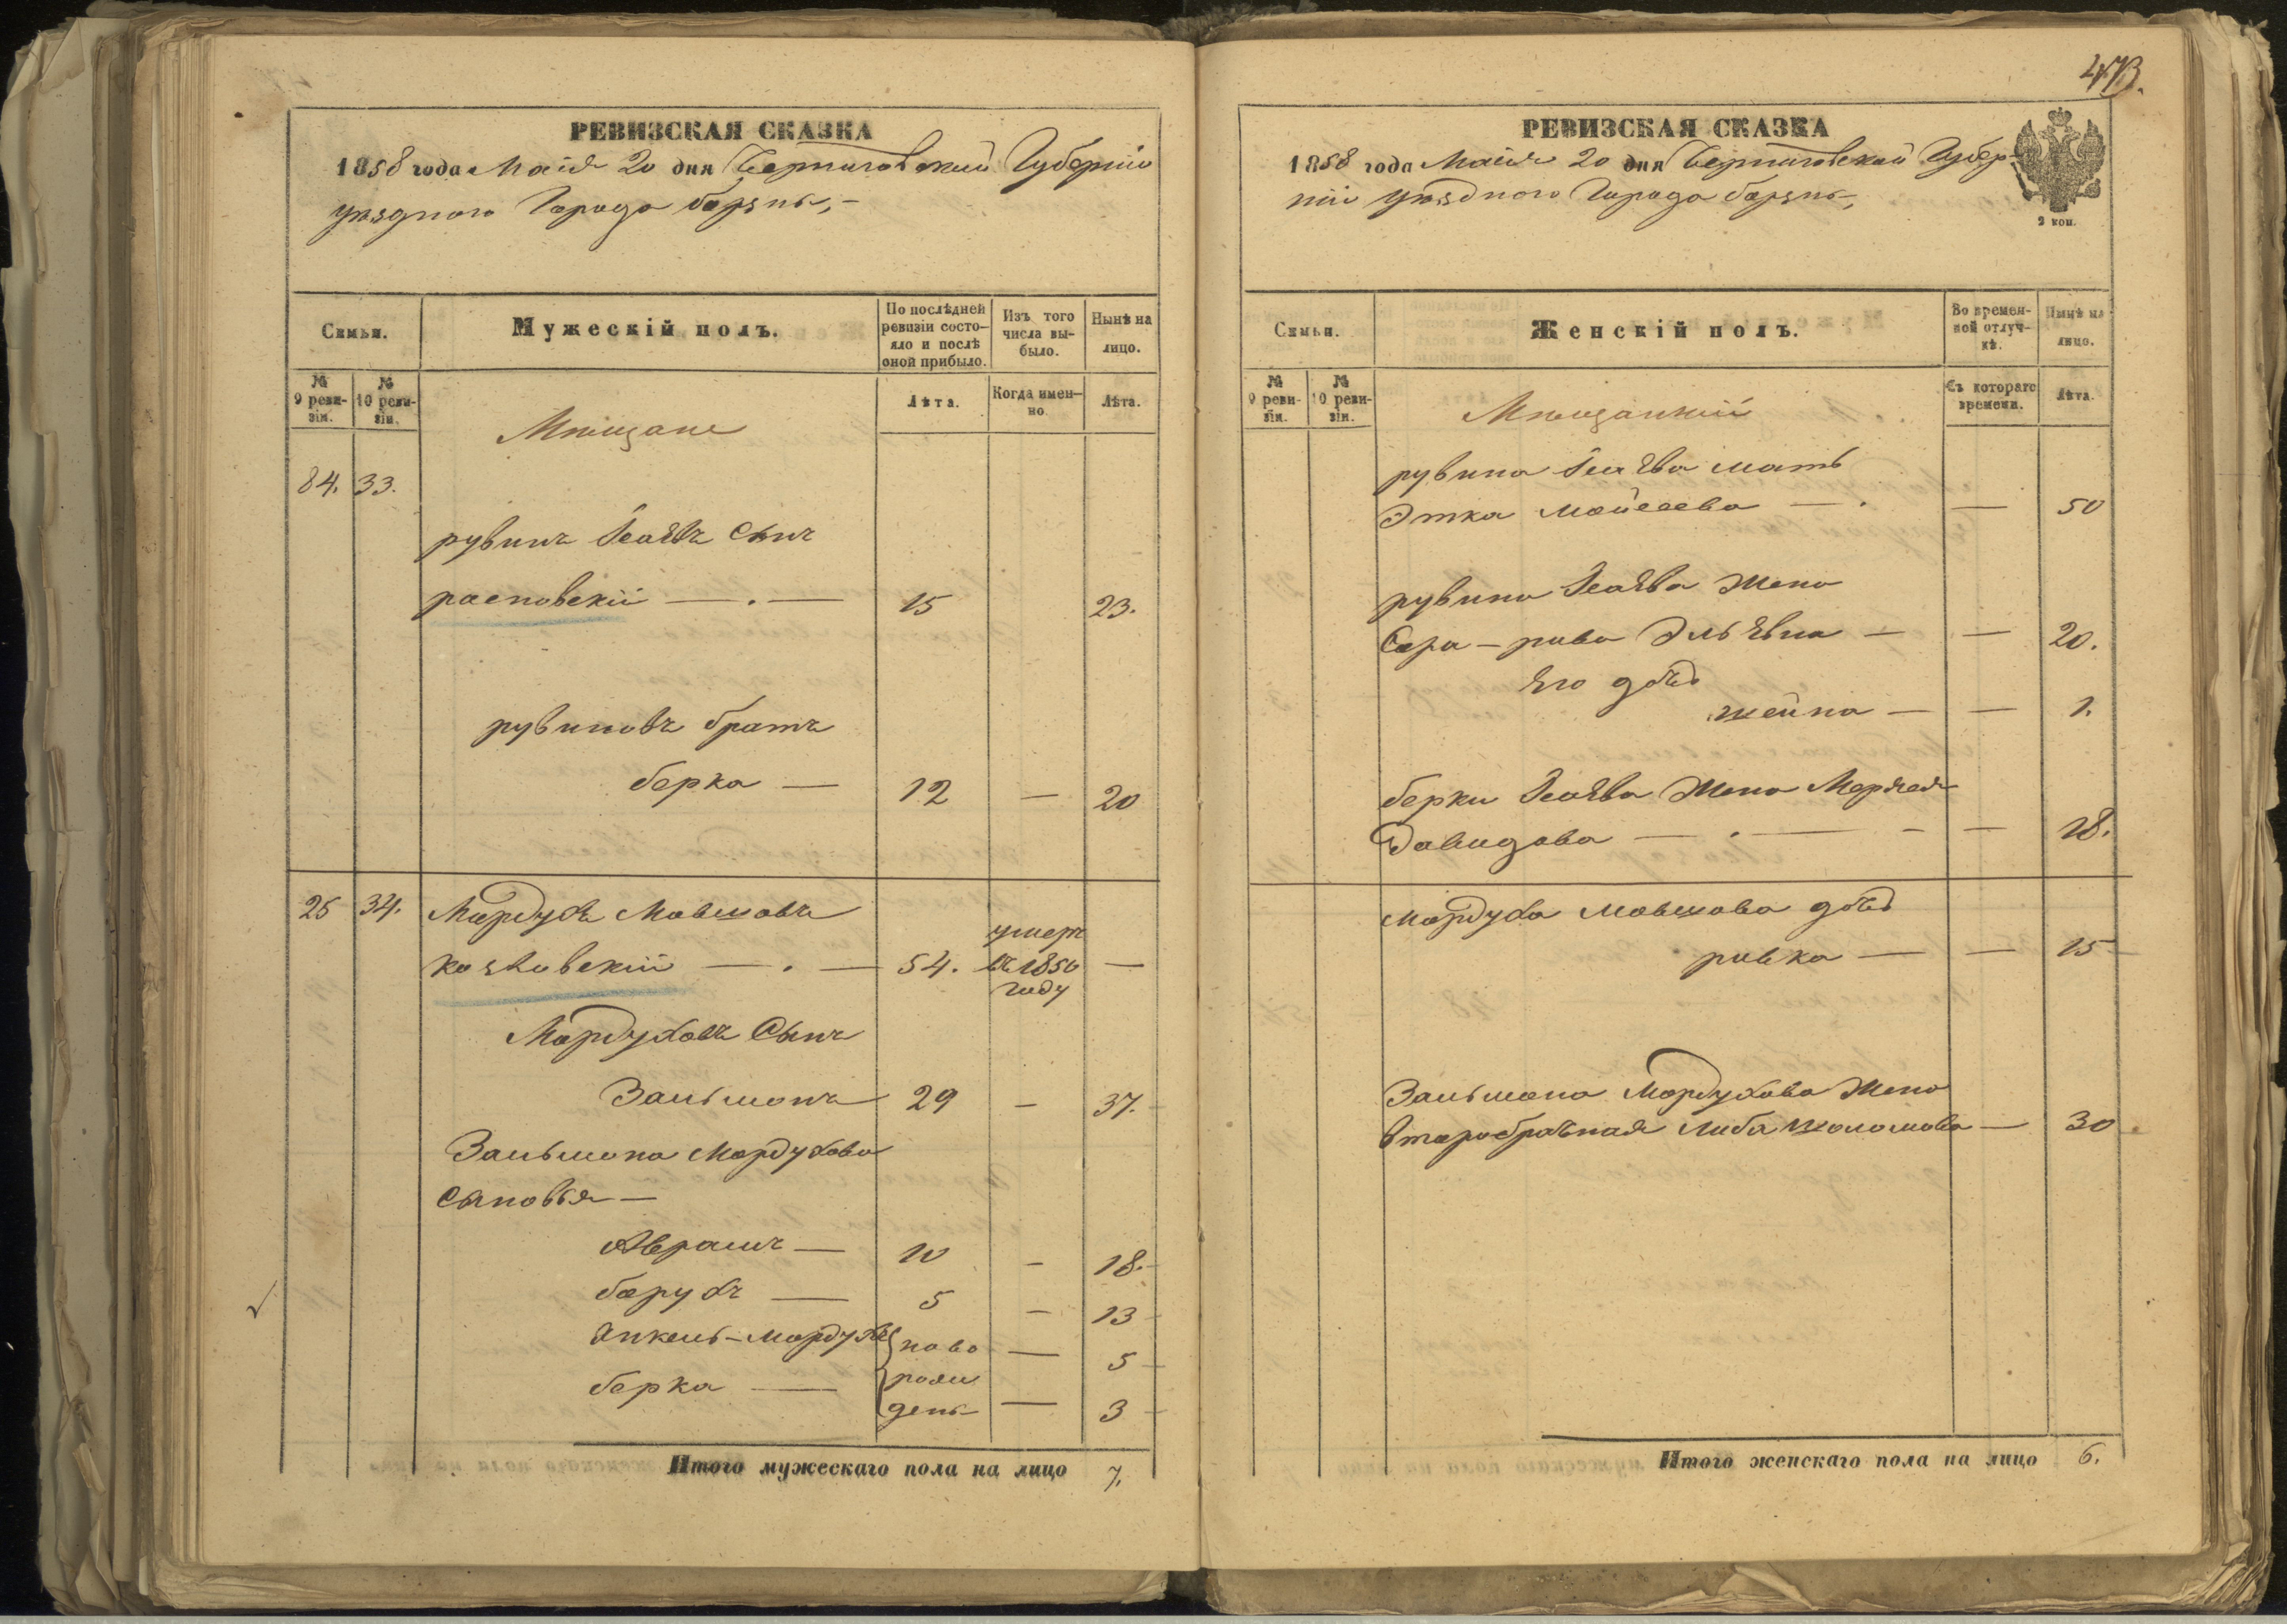 РЕВИЗСКАЯ СКАЗКА
1858 года Маія 20 дня Черниговской Губерніи
уѣзднаго Города борзны,-
Семьи.
Мужескій полъ.
По послѣдней ревизіи состояло и послѣ оной прибыло.
Изъ того числа выбыло.
Нынѣ на лицо.
№ 9 ревизіи.
№ 10 ревизіи.
Лѣта.
Когда именно.
Лѣта.
Мѣщане
84. 33.
рувинъ Сынъ
15 23.
рувиновъ братъ
берка — 12 — 20
25 34. Мордухъ Мовшовъ
54. умеръ въ 1850 году —
Мордуховъ Сынъ
Зальмонъ 29 — 37.
Зальмона Мордухова
Сыновья —
Абрамъ — 10 — 18.
борухъ — 5 — 13
Янкель-Мордухъ ново — 5
берка — рож день — 3
Итого мужескаго пола на лицо 7.
473.
РЕВИЗСКАЯ СКАЗКА
1858 года Маія 20 дня Черниговской Губер-
ніи уѣзднаго Города борзны,
2 коп.
Семьи.
Женскій полъ.
Во временной отлучкѣ.
Нынѣ на лицо.
№ 9 ревизіи.
№ 10 ревизіи.
Съ котораго времени.
Лѣта.
Мѣщанкіи
рувина мать
Этка Мойсеева — — 50
рувина жена
Сора-рива — — 20.
Его дочь
шейна — — 1.
берки жена
Давидова — — 18.
Мордуха Мовшова дочь
ривка — — 15
Зальмона Мордухова жена
второбрачная Либа Шоломова — 30
Итого женскаго пола на лицо 6.